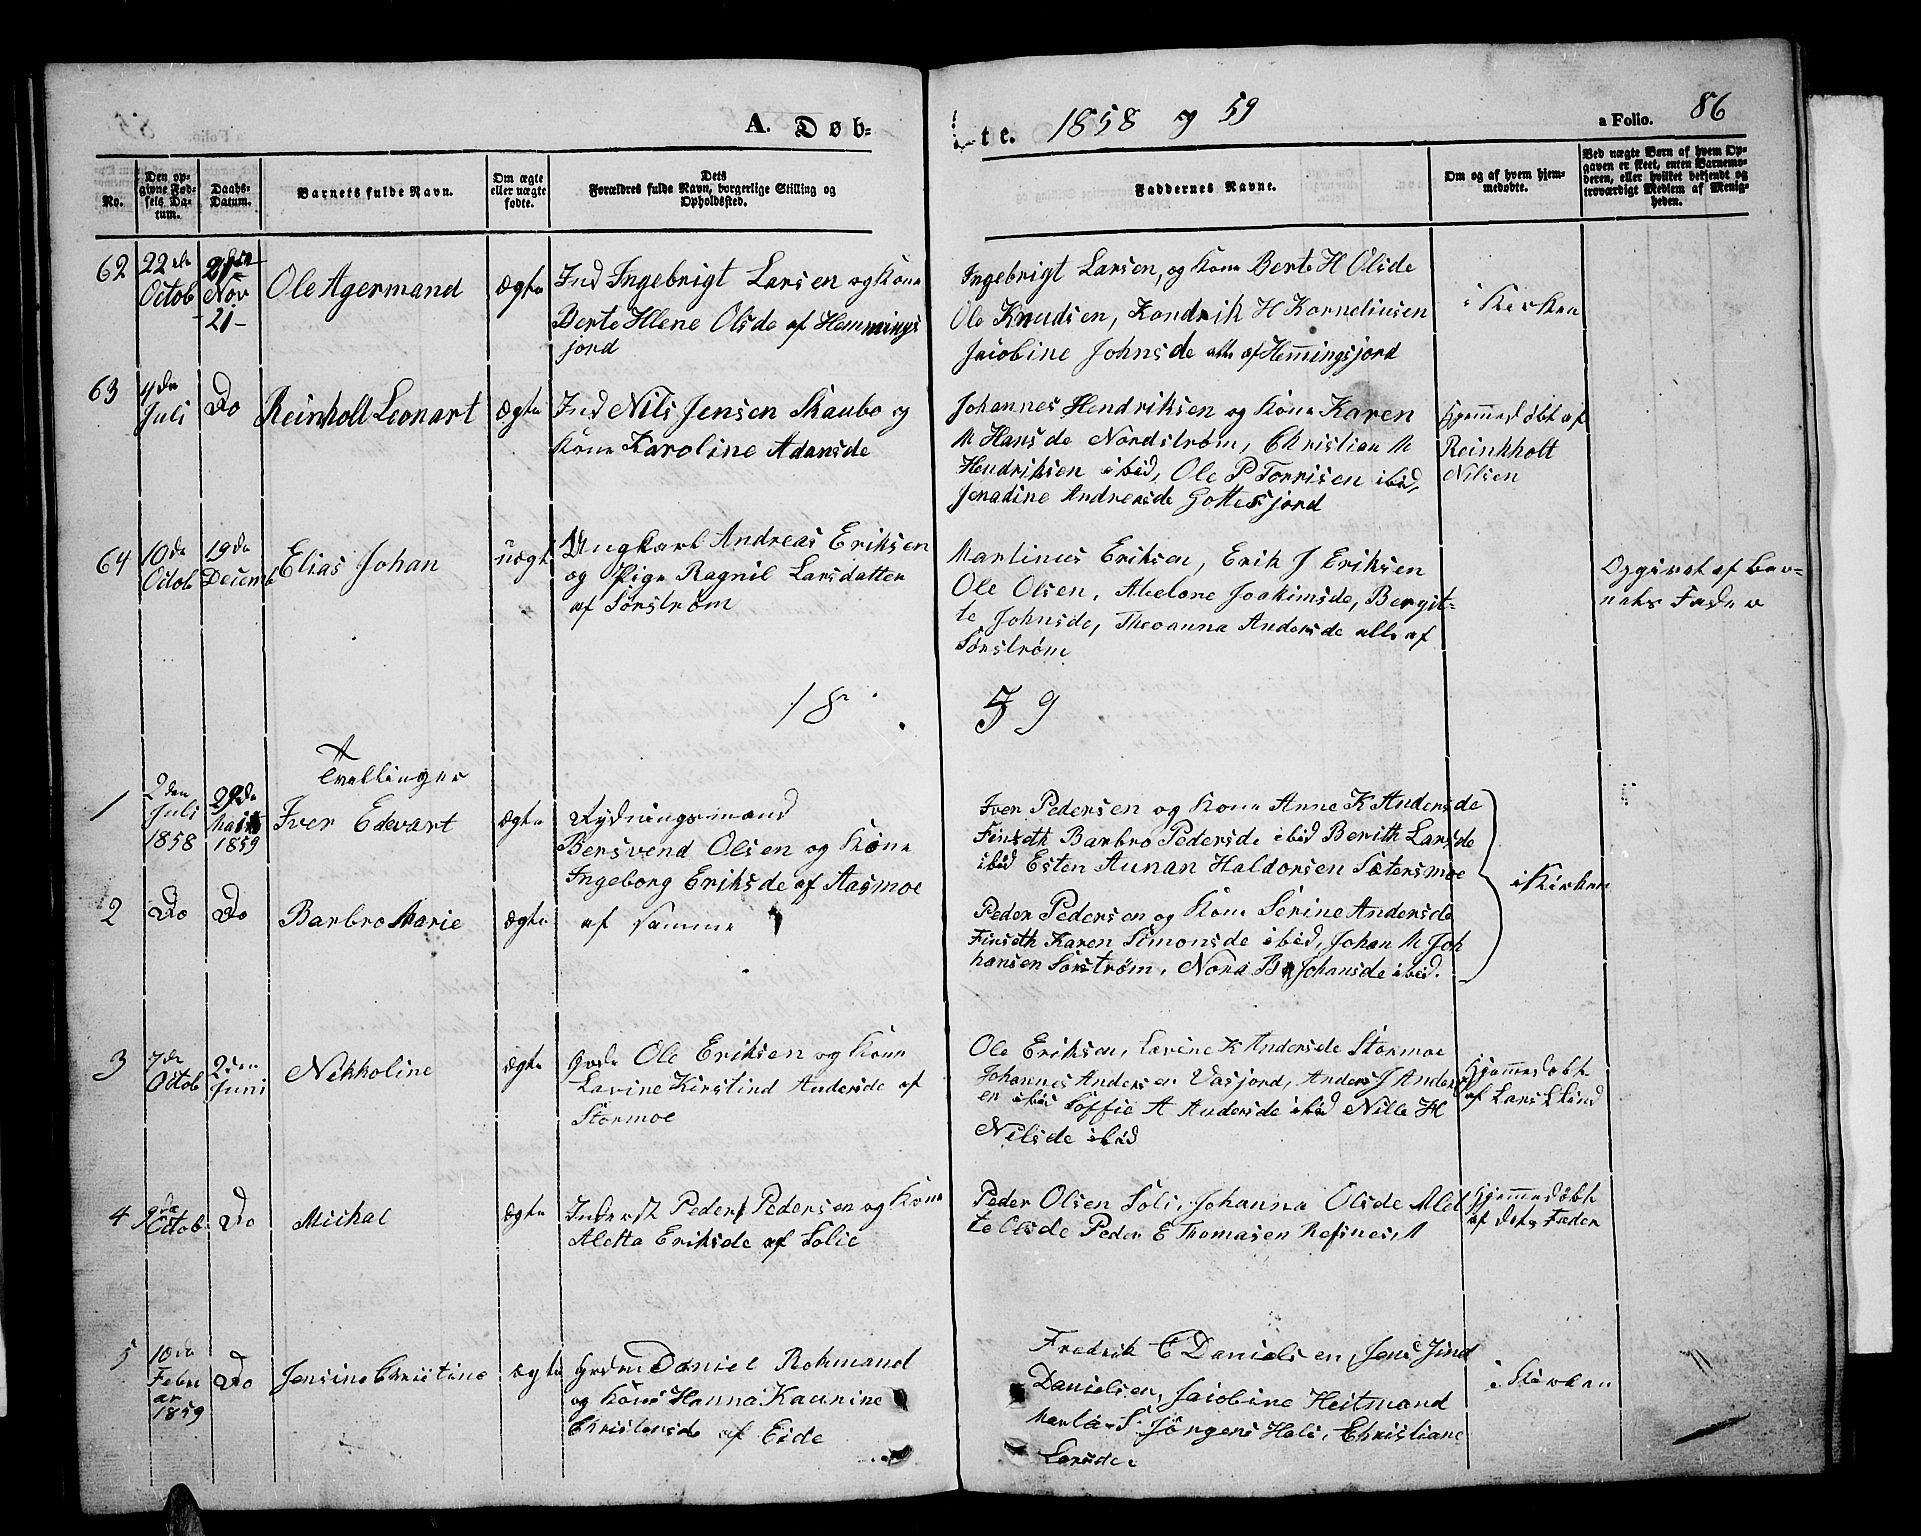 A. Døb-
te. 1858 og 59
a Folio. 86
No.
Den op-
givne Fød-
sels Da-
tum.
Daabs-
Datum.
Barnets fulde Navn.
Om ægte
eller uægte
fødte.
Dets
Forældres fulde Navn, borgerlige Stilling og
Opholdssted.
Faddernes Navne.
Om og af hvem hjem-
medøbte.
Ved uægte Børn af hvem Op-
gaven er skeet, enten Barnemo-
deren, eller hvilket bekjendt og
troværdigt Medlem af Menig-
heden.
62
22de
Octob
Nov
21
Ole Agermand
Ægte
Ind Ingebrigt Larsen og Kone
Berte Hlene Olsde af Hemmings
jord
Ingebrigt Larsen, og Kone Berte H Olsde
Ole Knudsen, Kondrik H Korneliusen
Jacobine Johnsde alle af Hemingsjord
i Kirken
63
4de
Juli
Do
Reinholt Leonart
Ægte
Ind Nils Jensen Skaubo og
Kone Karoline Adamsde
Johannes Hendriksen og Kone Karen
M Hansde Nordstrøm, Christian M
Hendriksen ibid, Ole P Torrisen ibid,
Jenadine Andreasde Gottesjord
Hjemmedøbt af
Reinkholt
Nilsen
64
10de
Octob
19de
Decemb
Elias Johan
uægte
Ungkarl Andreas Eriksen
og Pige Ragnil Larsdatter
af Sørstrøm
Martinus Eriksen, Erik J Eriksen
Ole Olsen, Abelone Joakimsde, Bergit-
te Johnsde, Theoanna Andersde alle af
Sørstrøm
Opgivet af Bar-
nets Fader
18
59
Tvillinger
1
2den
Juli
1858
29de
Mai
1859
Iver Edevart
Ægte
Rydningsmand
Bersvend Olsen og Kone
Ingeborg Eriksde af Aasmoe
Iver Pedersen og Kone Anne K Andersde
Finseth Barbro Pedersde ibid Berith Larsde
ibid Esten Aunan Haldorsen Sætersmoe
i Kirken
2
Do
Do
Barbro Marie
Ægte
af samme
Peder Pedersen og Kone Serine Andersde
Finseth Karen Simonsde ibid, Johan M Joh
hansen Sørstrøm, Nora B Johansde ibid.
3
7de
Octob
2den
Juni
Nikkoline
Ægte
Gaard Ole Eriksen og Kone
Lavine Kirstind Andersde af
Stormoe
Ole Eriksen, Lavine K Andersde Stormoe
Johannes Andersen Vasjord, Anders J Anders
en ibid Soffie A Andersde ibid Nille H
Nilsde ibid
Hjemmedøbt
af Lars Lind
4
9de
Octob
Do
Michal
Ægte
Inderst Peder Pedersen og Kone
Aletta Eriksde af Solie
Peder Olsen Soli, Johanna Olsde Alet
te Olsde Peder E Thomasen Refsnes
Hjemmedøbt
af dets Fader
5
10de
Febru
ar
1859
Do
Jensine Christine
Ægte
Daniel Rohmand
og Kone Hanna Kaurine
Christensde af Eide
Fredrik C Danielsen, Jens Jind
Danielsen, Jacobine Heitmand
S. Jørgens Hals, Christiane
Larsde.
i Kirken